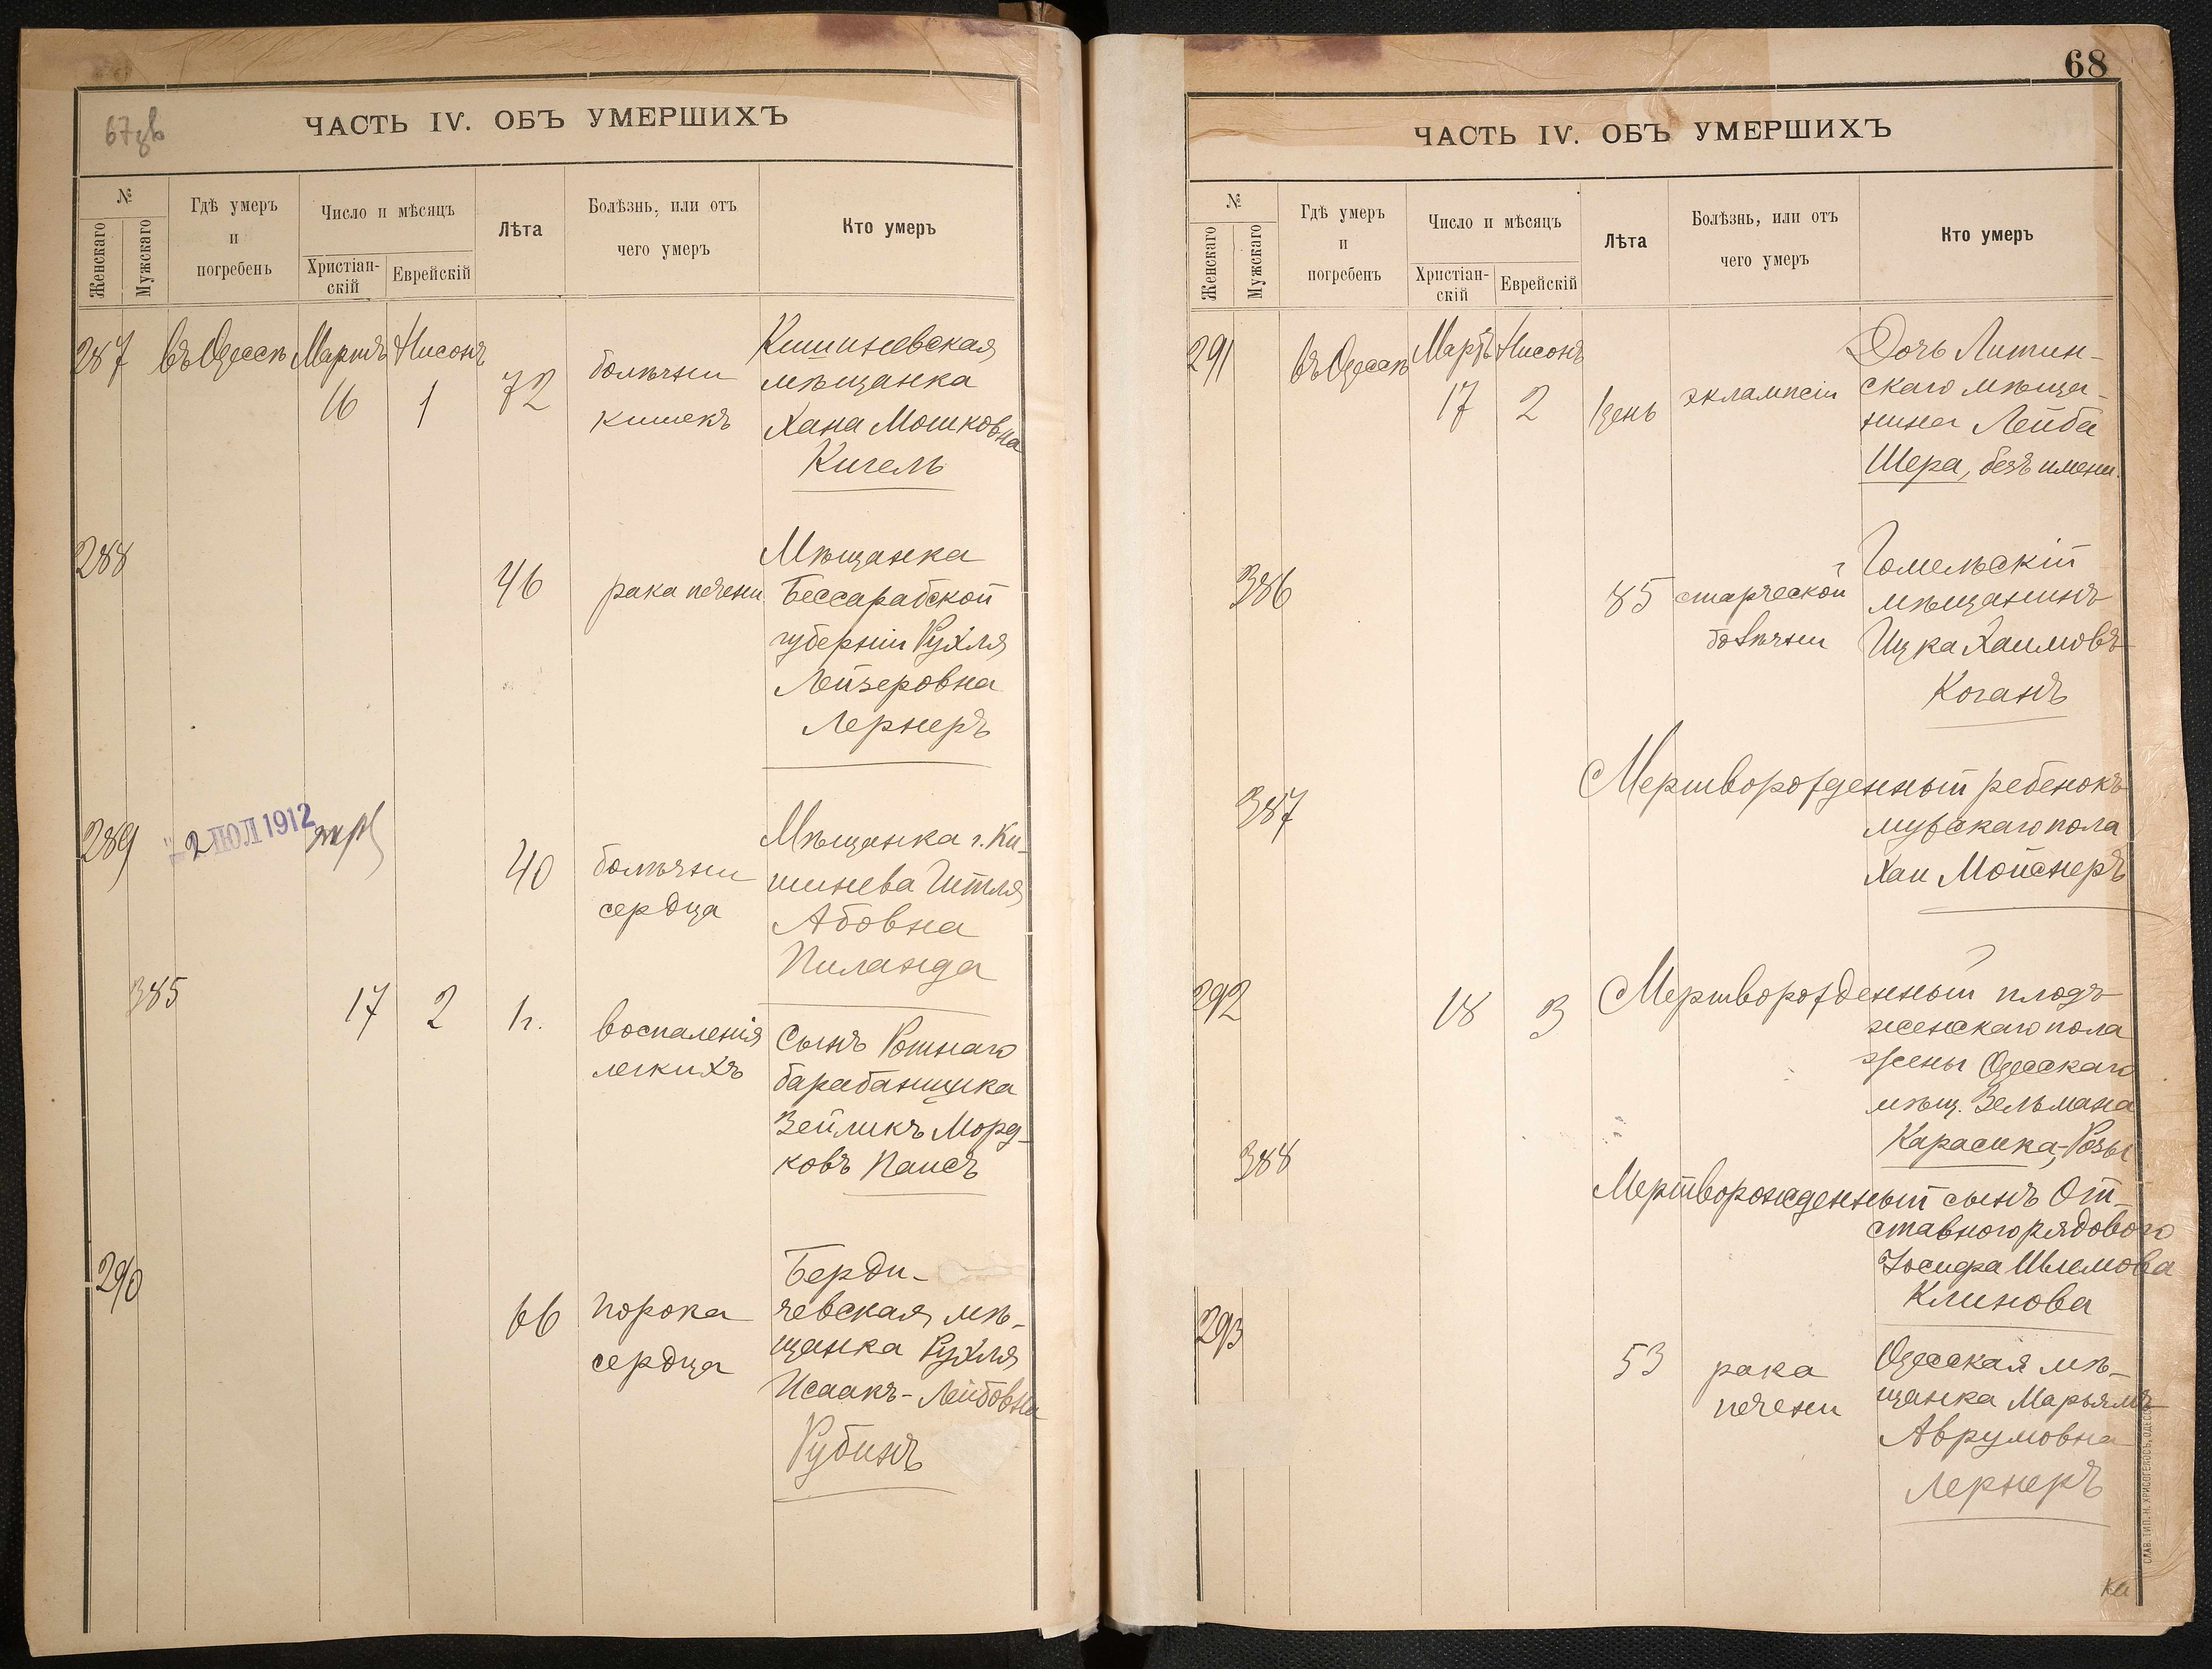 67 зв
ЧАСТЬ IV. ОБЪ УМЕРШИХЪ
№
Женскаго
Мужскаго
Гдѣ умеръ
и
погребенъ
Число и мѣсяцъ
Христіан-
скій
Еврейскій
Лѣта
Болѣзнь, или отъ
чего умеръ
Кто умеръ
287 въ Одессѣ Мартъ Нисонъ
16 1 72
болѣзни
кишекъ
Кишиневская
мѣщанка
Хана Мошковна
Кигель
288
46 рака печени
Мѣщанка
Бессарабской
губерніи Рухля
Лейзеровна
Лернеръ
289
2 ІЮЛ 1912
40 болѣзни
сердца
Мѣщанка г. Ки-
шинева Гитля
Абовна
Пиланда
385 17 2 1 г.
воспаленія
легкихъ
Сынъ Ротнаго
барабанщика
Зейликъ Морд-
ковъ Паисъ
290
66 порока
сердца
Берди-
чевская мѣ-
щанка Рухля
Исаакъ-Лейбовна
Рубинъ
68
ЧАСТЬ IV. ОБЪ УМЕРШИХЪ
№
Женскаго
Мужскаго
Гдѣ умеръ
и
погребенъ
Число и мѣсяцъ
Христіан-
скій
Еврейскій
Лѣта
Болѣзнь, или отъ
чего умеръ
Кто умеръ
291 въ Одессѣ Мартъ Нисонъ
17 2 1 день эклампсіи
Дочь Литин-
скаго мѣща-
нина Лейба
Шера, безъ имени.
386
85 старческой
болѣзни
Гомельскій
мѣщанинъ
Ицка Хаимовъ
Коганъ
387
Мертворожденный ребенокъ
мужскаго пола
Хаи Мойснеръ
292 18 3
Мертворожденный плодъ
женскаго пола
жены Одесскаго
мѣщ. Зельмана
Карасика, Розы
388
Мертворожденный сынъ От-
ставного рядового
Іосифа Шлемова
Клинова
293
53 рака
печени
Одесская мѣ-
щанка Марьямъ
Аврумовна
Лернеръ
СЛАВ. ТИП. Н. ХРИСОГЕЛОСЪ, ОДЕССА